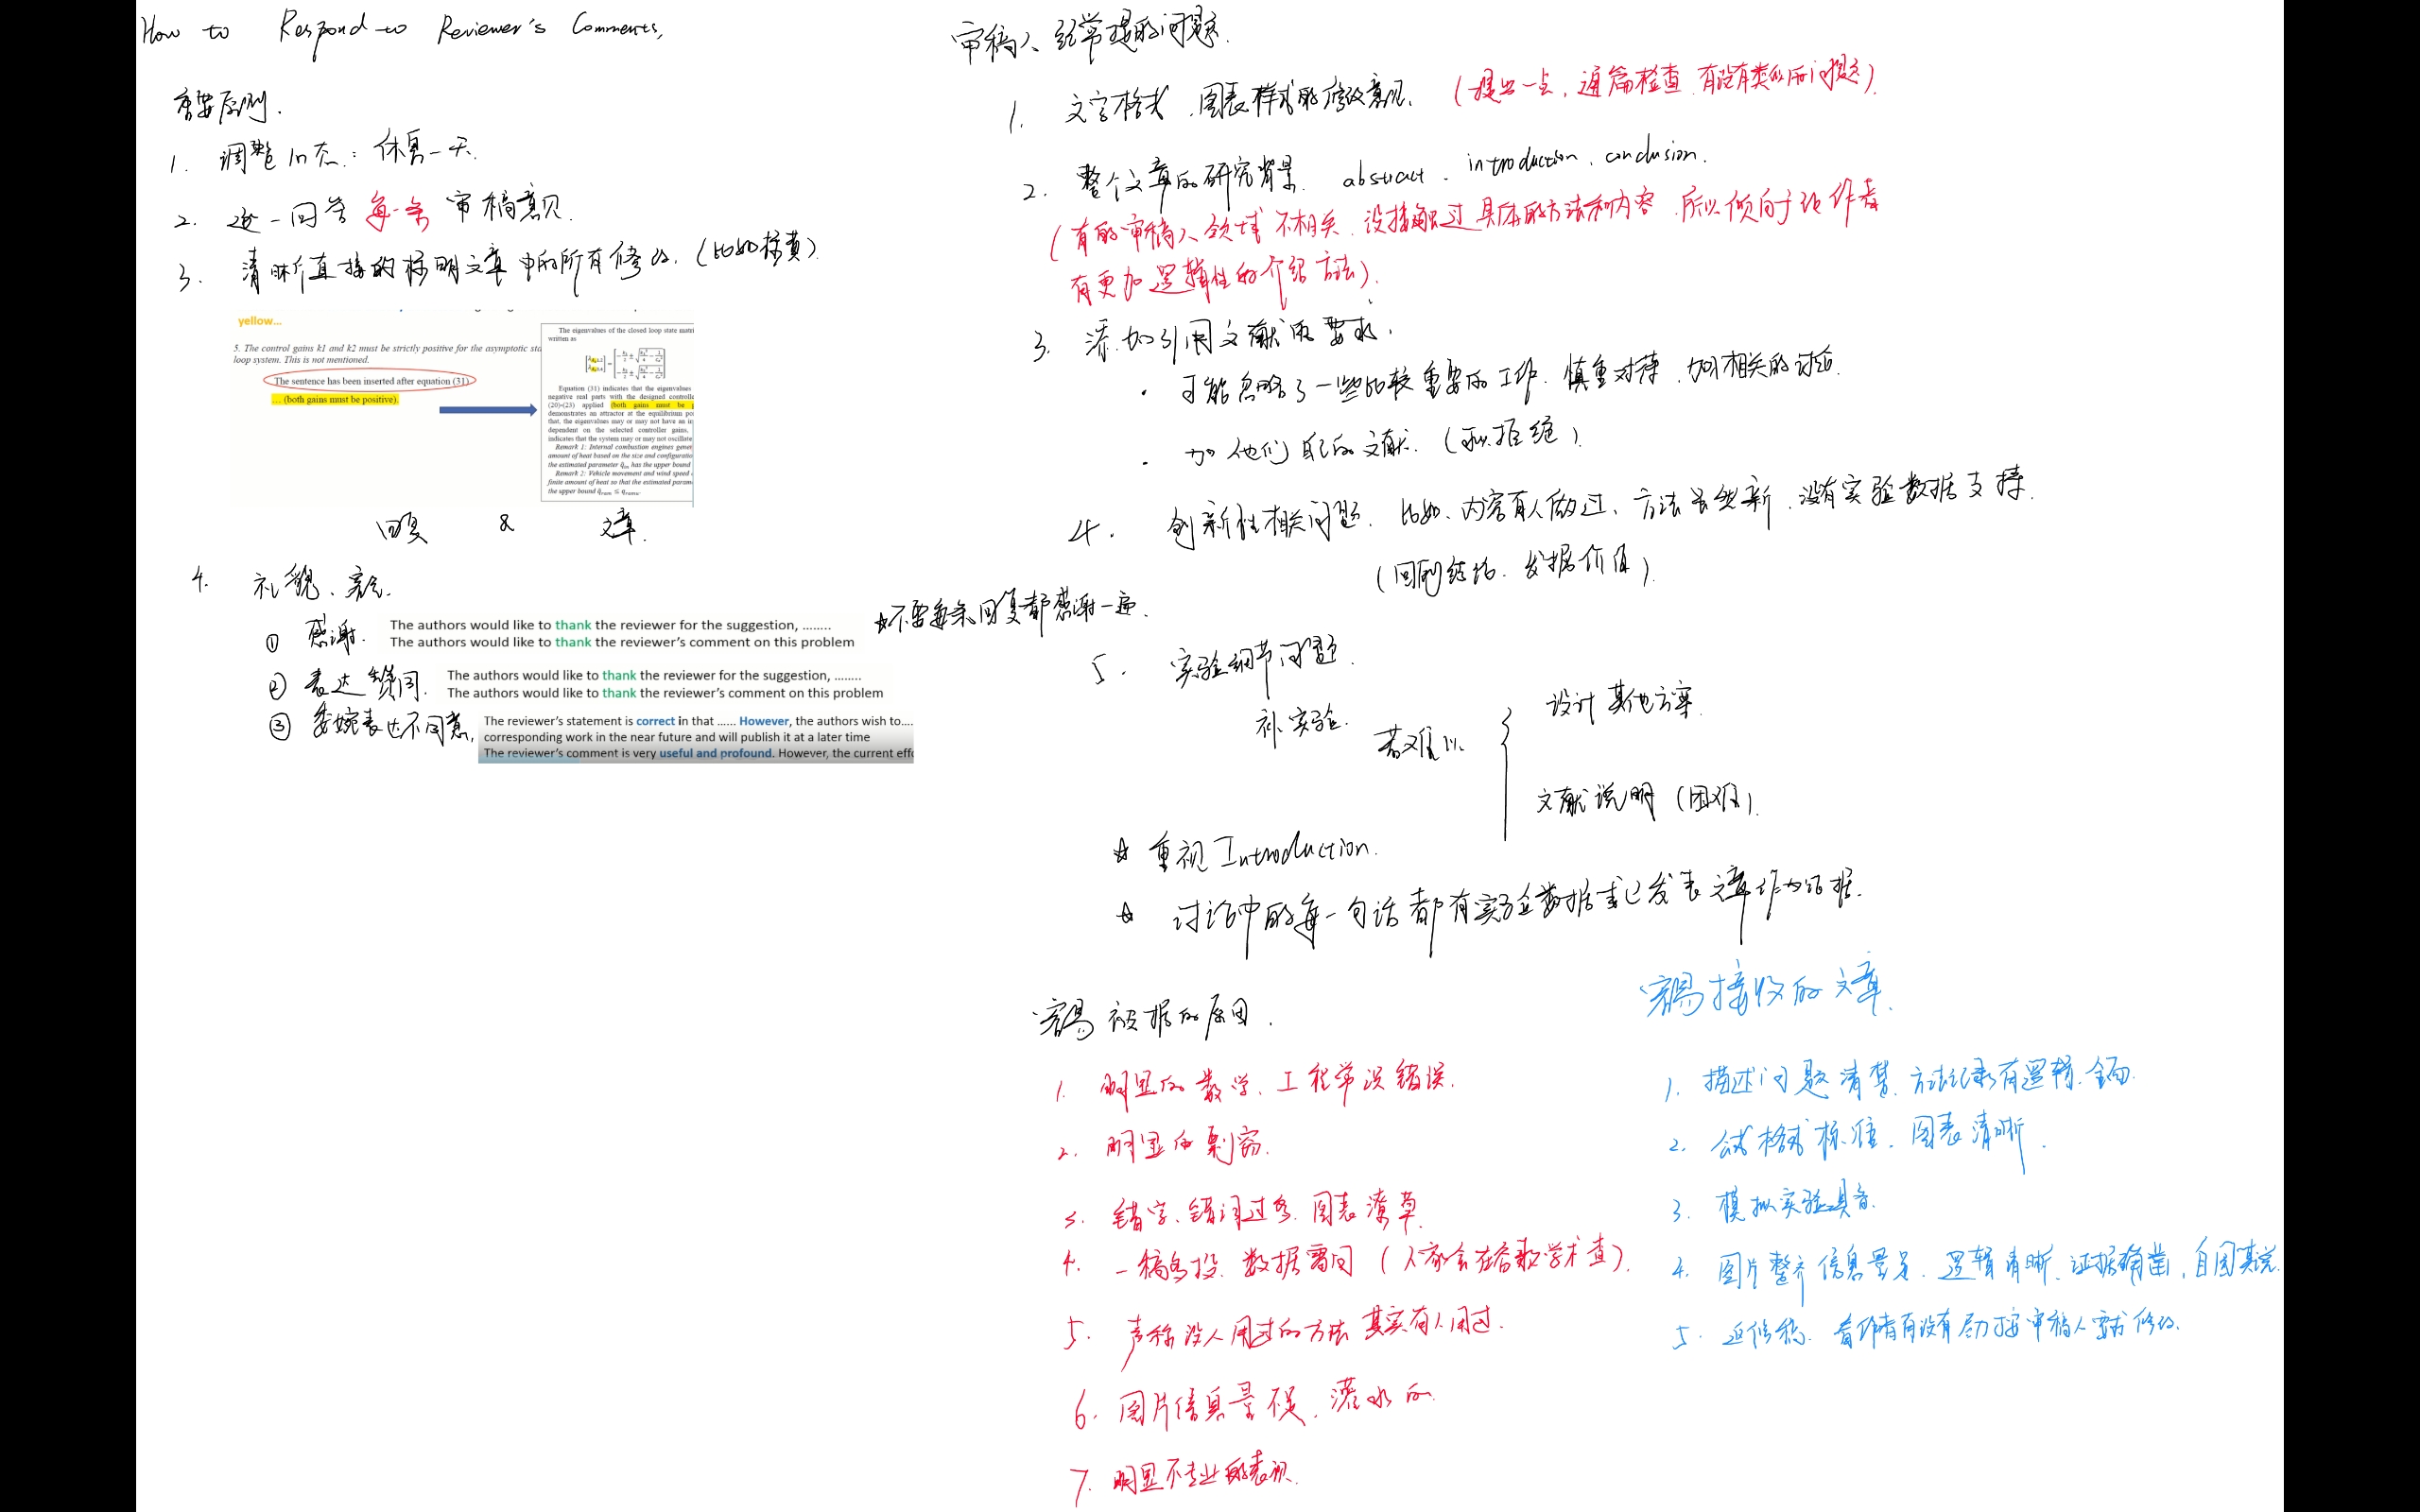 How to Respond to Reviewer's Comments,
重要原则.
1. 调整心态: 休息一天.
2. 逐一回答 每一条 审稿意见.
3. 清晰直接的标明文章中的所有修改. (比如标黄)
yellow...
5. The control gains k1 and k2 must be strictly positive for the asymptotic sta
loop system. This is not mentioned.
The sentence has been inserted after equation (31)
... (both gains must be positive).
The eigenvalues of the closed loop state matr
written as
Equation (31) indicates that the eigenvalues
negative real parts with the designed controlle
(20)-(23) applied (both gains must be p
demonstrates an attractor at the equilibrium po
that, the eigenvalues may or may not have an in
dependent on the selected controller gains,
indicates that the system may or may not oscillate
Remark 1: Internal combustion engines gener
amount of heat based on the size and configuratio
the estimated parameter q̄in has the upper bound
Remark 2: Vehicle movement and wind speed
finite amount of heat so that the estimated param
the upper bound
回复 & 文章.
4. 礼貌、客气.
① 感谢.
The authors would like to thank the reviewer for the suggestion, ........
The authors would like to thank the reviewer's comment on this problem
☆不需要每条回复都感谢一遍.
② 表达赞同.
The authors would like to thank the reviewer for the suggestion, ........
The authors would like to thank the reviewer's comment on this problem
③ 委婉表达不同意.
The reviewer's statement is correct in that ...... However, the authors wish to....
corresponding work in the near future and will publish it at a later time
The reviewer's comment is very useful and profound. However, the current effo
审稿人经常提的问题.
1. 文字格式、图表样式的修改意见. (提出一点, 通篇检查 有没有类似的问题)
2. 整个文章的研究背景. abstract、introduction、conclusion.
(有的审稿人领域不相关, 没接触过具体的方法和内容, 所以倾向于让作者
有更加逻辑性的介绍方法).
3. 添加引用文献的要求.
· 可能忽略了一些比较重要的工作. 慎重对待, 加入相关的讨论.
· 加他们自己的文献. (可以拒绝).
4. 创新性相关问题. 比如、内容有人做过、方法虽然新, 没有实验数据支持.
(回到结论. 发掘价值).
5. 实验细节问题.
补实验. 若难以
设计其他方案.
文献说明 (困难).
☆ 重视Introduction.
☆ 讨论中的每一句话都有实验数据或已发表文章作为证据.
容易被拒的原因.
1. 明显的数学、工程常识错误.
2. 明显的剽窃.
3. 错字、错词过多. 图表潦草
4. 一稿多投. 数据雷同 (人家会在谷歌学术查).
5. 声称没人用过的方法 其实有人用过.
6. 图片信息量不足, 灌水的.
7. 明显不专业的表现.
容易接收的文章.
1. 描述问题清楚. 方法记录有逻辑. 全面.
2. 公式格式标准. 图表清晰.
3. 模拟实验具备.
4. 图片整齐 信息量足. 逻辑清晰. 证据确凿, 自圆其说.
5. 返修稿. 看作者有没有尽力按审稿人要求修改.